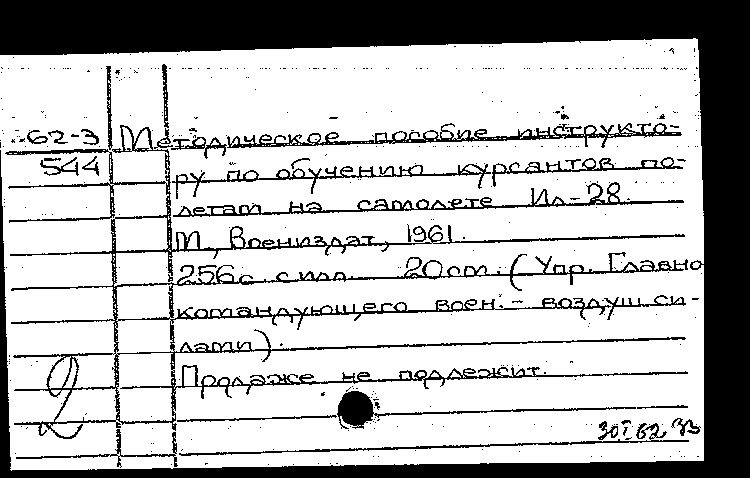 62-3
544
Методическое пособие инструкто-
ру по обучению курсантов по-
летам на самолете Ил-28.
М., Воениздат, 1961.
256с. с илл. 20см. (Упр. Главно
командующего воен.- воздуш. си-
лами).
Продаже не подлежит.
2